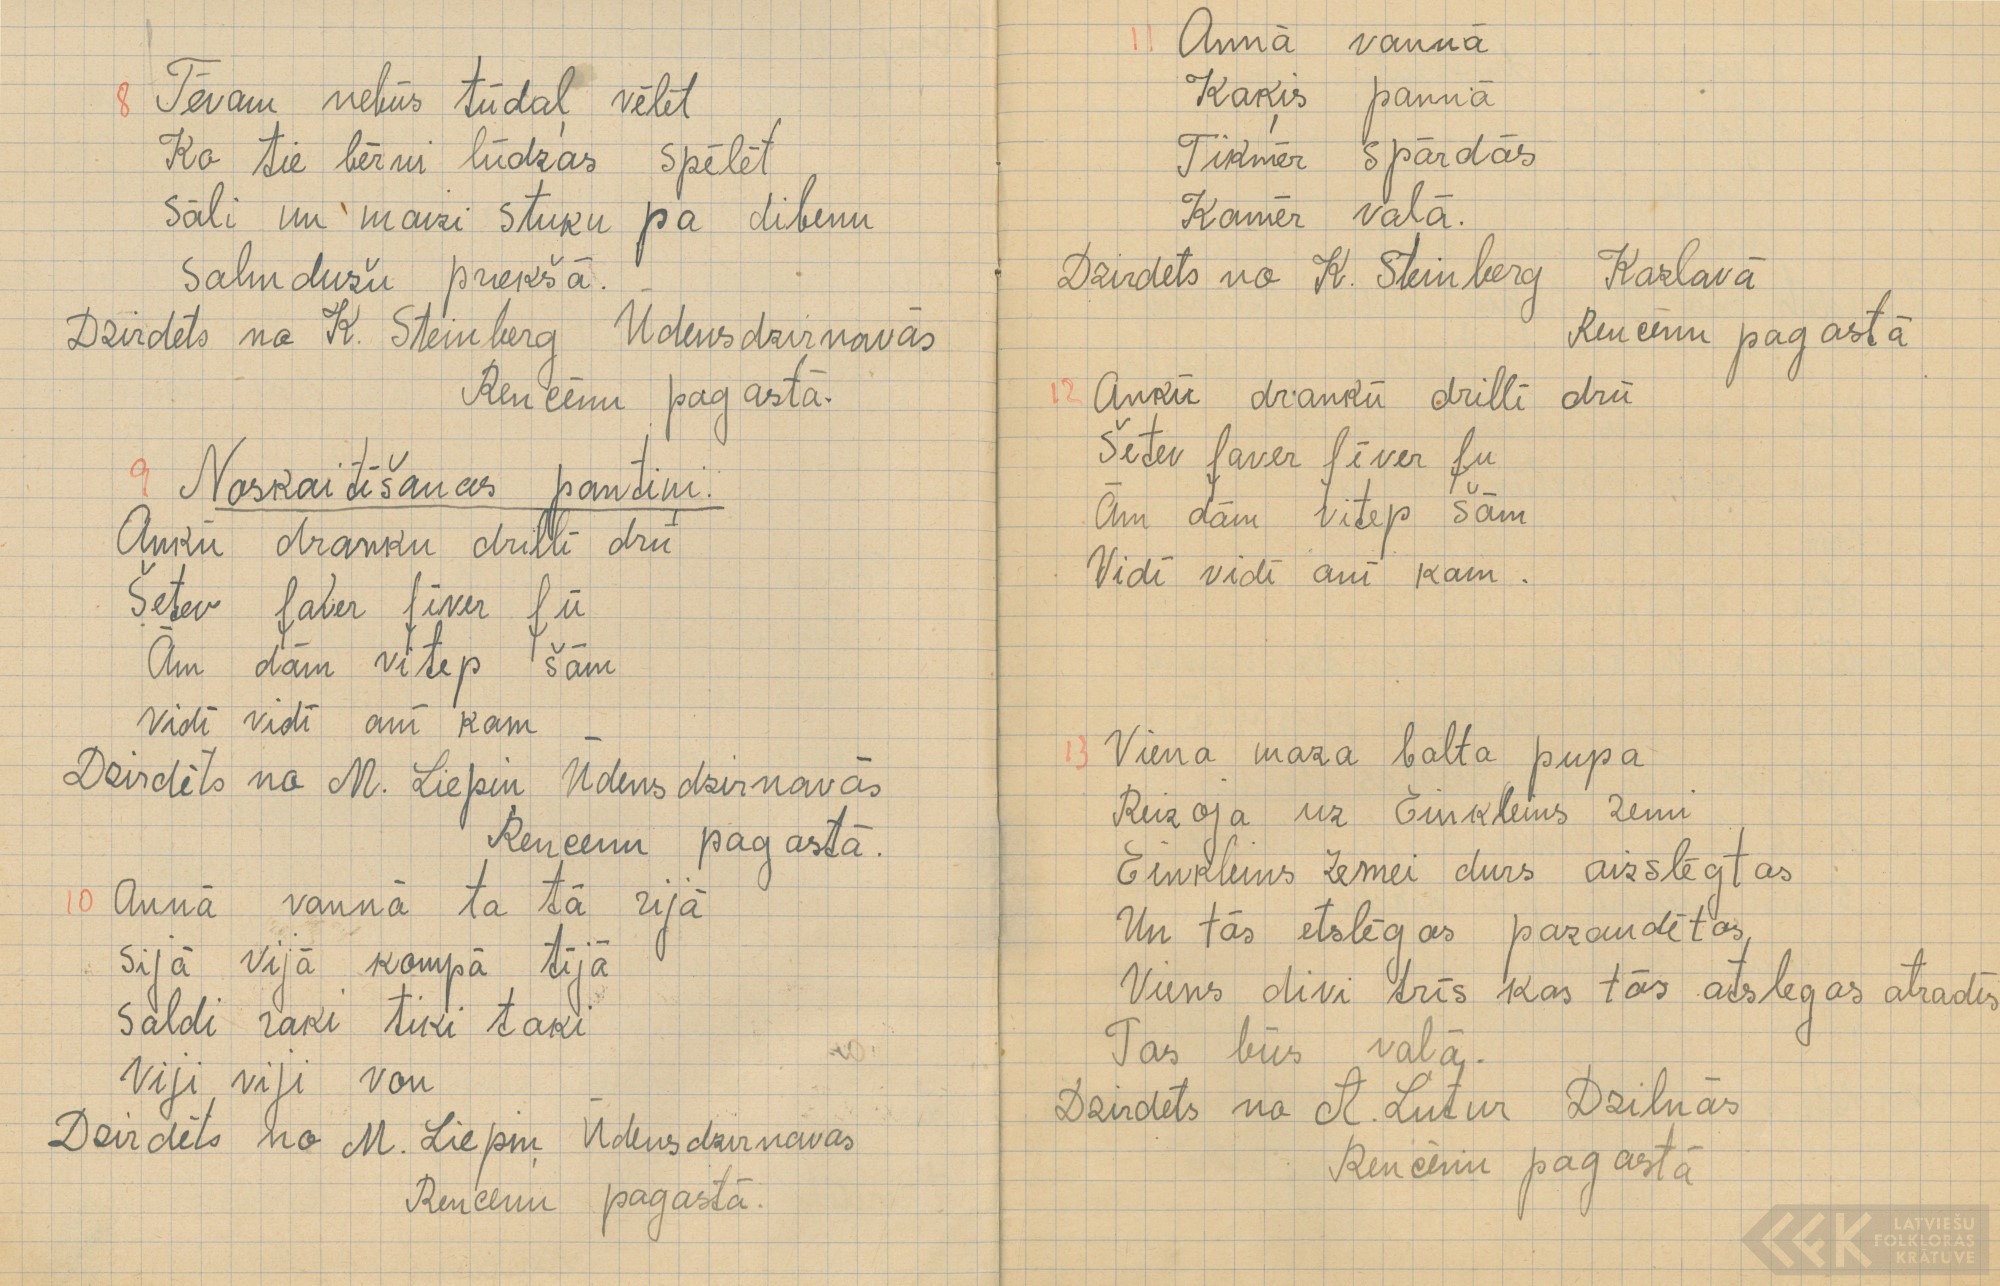 8 Tēvam nebūs tūdaļ vēlēt
Ko tie bērni lūdzās spēlēt
Sāli un maizi stuku pa dibenu
Salmdužu priekšā.
Dzirdēts no K. Steinberg Ūdensdzirnavās
Rencēnu pagastā.
9 Noskaitīšanas pantiņi.
Ankū dranku drillī drū
Šetev faver fīver fū
Ām dām vitep šām
Vidī vidī anī kam
Dzirdēts no M. Liepiņ Ūdensdzirnavās
Rencenu pagastā.
10 Annā vannā ta tā rijā
Sijā vijā kompā tījā
Saldi raki tiki taki
Viji viji von
Dzirdēts no M. Liepiņ Ūdensdzirnavas
Rencenu pagastā.
11 Annā vannā
Kaķis pannā
Tikmēr spārdās
Kamēr vaļā.
Dzirdēts no K. Steinberg Kazlavā
Rencēnu pagastā
12 Ankū drankū drillī drū
Šetev faver fīver fu
Ām dām vitep šām
Vidī vidī anī kam.
13 Viena maza balta pupa
Reizoja uz Einkleins zemi
Einkleins zemei durs aizslēgtas
Un tās etslēgas pazaudētas,
Viens divi trīs kas tās atslegas atradīs
Tas būs vaļā.
Dzirdēts no A. Lutur Dzilnās
Rencēnu pagastā
LATVIEŠU
FOLKLORAS
KRĀTUVE